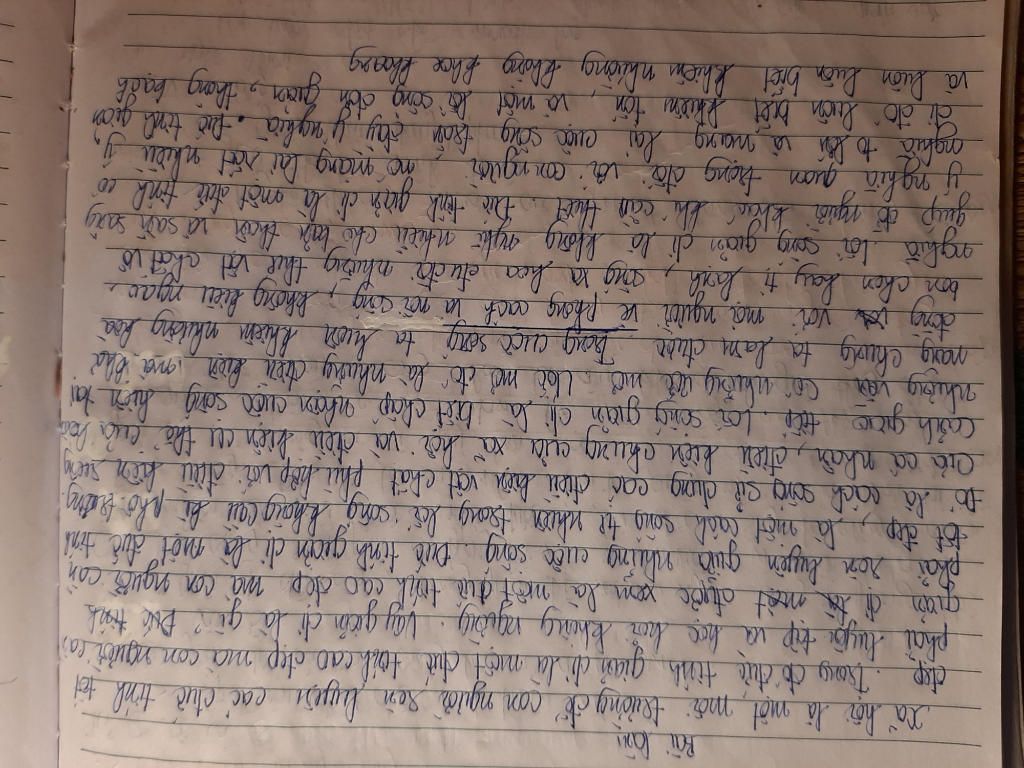 Bài làm
Xã hội là một môi trường để con người rèn luyện các đức tính tốt
đẹp. Trong đó đức tính giản dị là một đức tính cao đẹp mà con người ta
phải luyện tập và học hỏi không ngừng. Vậy giản dị là gì? Đức tính
giản dị một được xem là một đức tính cao đẹp mà con người cần
phải rèn luyện giữa những cuộc sống. Đức tính giản dị là một đức tính
tốt đẹp, là một cách sống tự nhiên trong lối sống không cầu kì phô trương.
Đó là cách sống sử dụng các điều kiện vật chất phù hợp với điều kiện riêng
của cá nhân, điều kiện chung của xã hội và điều kiện cụ thể của hoàn
cảnh giao tiếp. Lối sống giản dị là biết chấp nhận cuộc sống hiện tại
nhưng vẫn có những ước mơ. Ước mơ đó là những điều kiện mà khả
năng chúng ta làm được. Trong cuộc sống ta luôn khiêm nhường hòa
đồng với mọi người về phong cách và nói sống, không kiêu ngạo,
bon chen hay tị hạnh, sống xa hoa đua đòi những thứ vật chất vô
nghĩa. Lối sống giản dị là không nghĩ nhiều cho bản thân và sẵn sàng
giúp đỡ người khác khi cần thiết. Đức tính giản dị là một đức tính có
ý nghĩa quan trọng đối với con người, nó mang lại rất nhiều ý
nghĩa to lớn và mang lại cuộc sống tràn đầy ý nghĩa. Đức tính giản
dị đó luôn biết khiêm tốn, và một lối sống đơn giản, thông bạch
và luôn biết khiêm nhường không khoe khoang